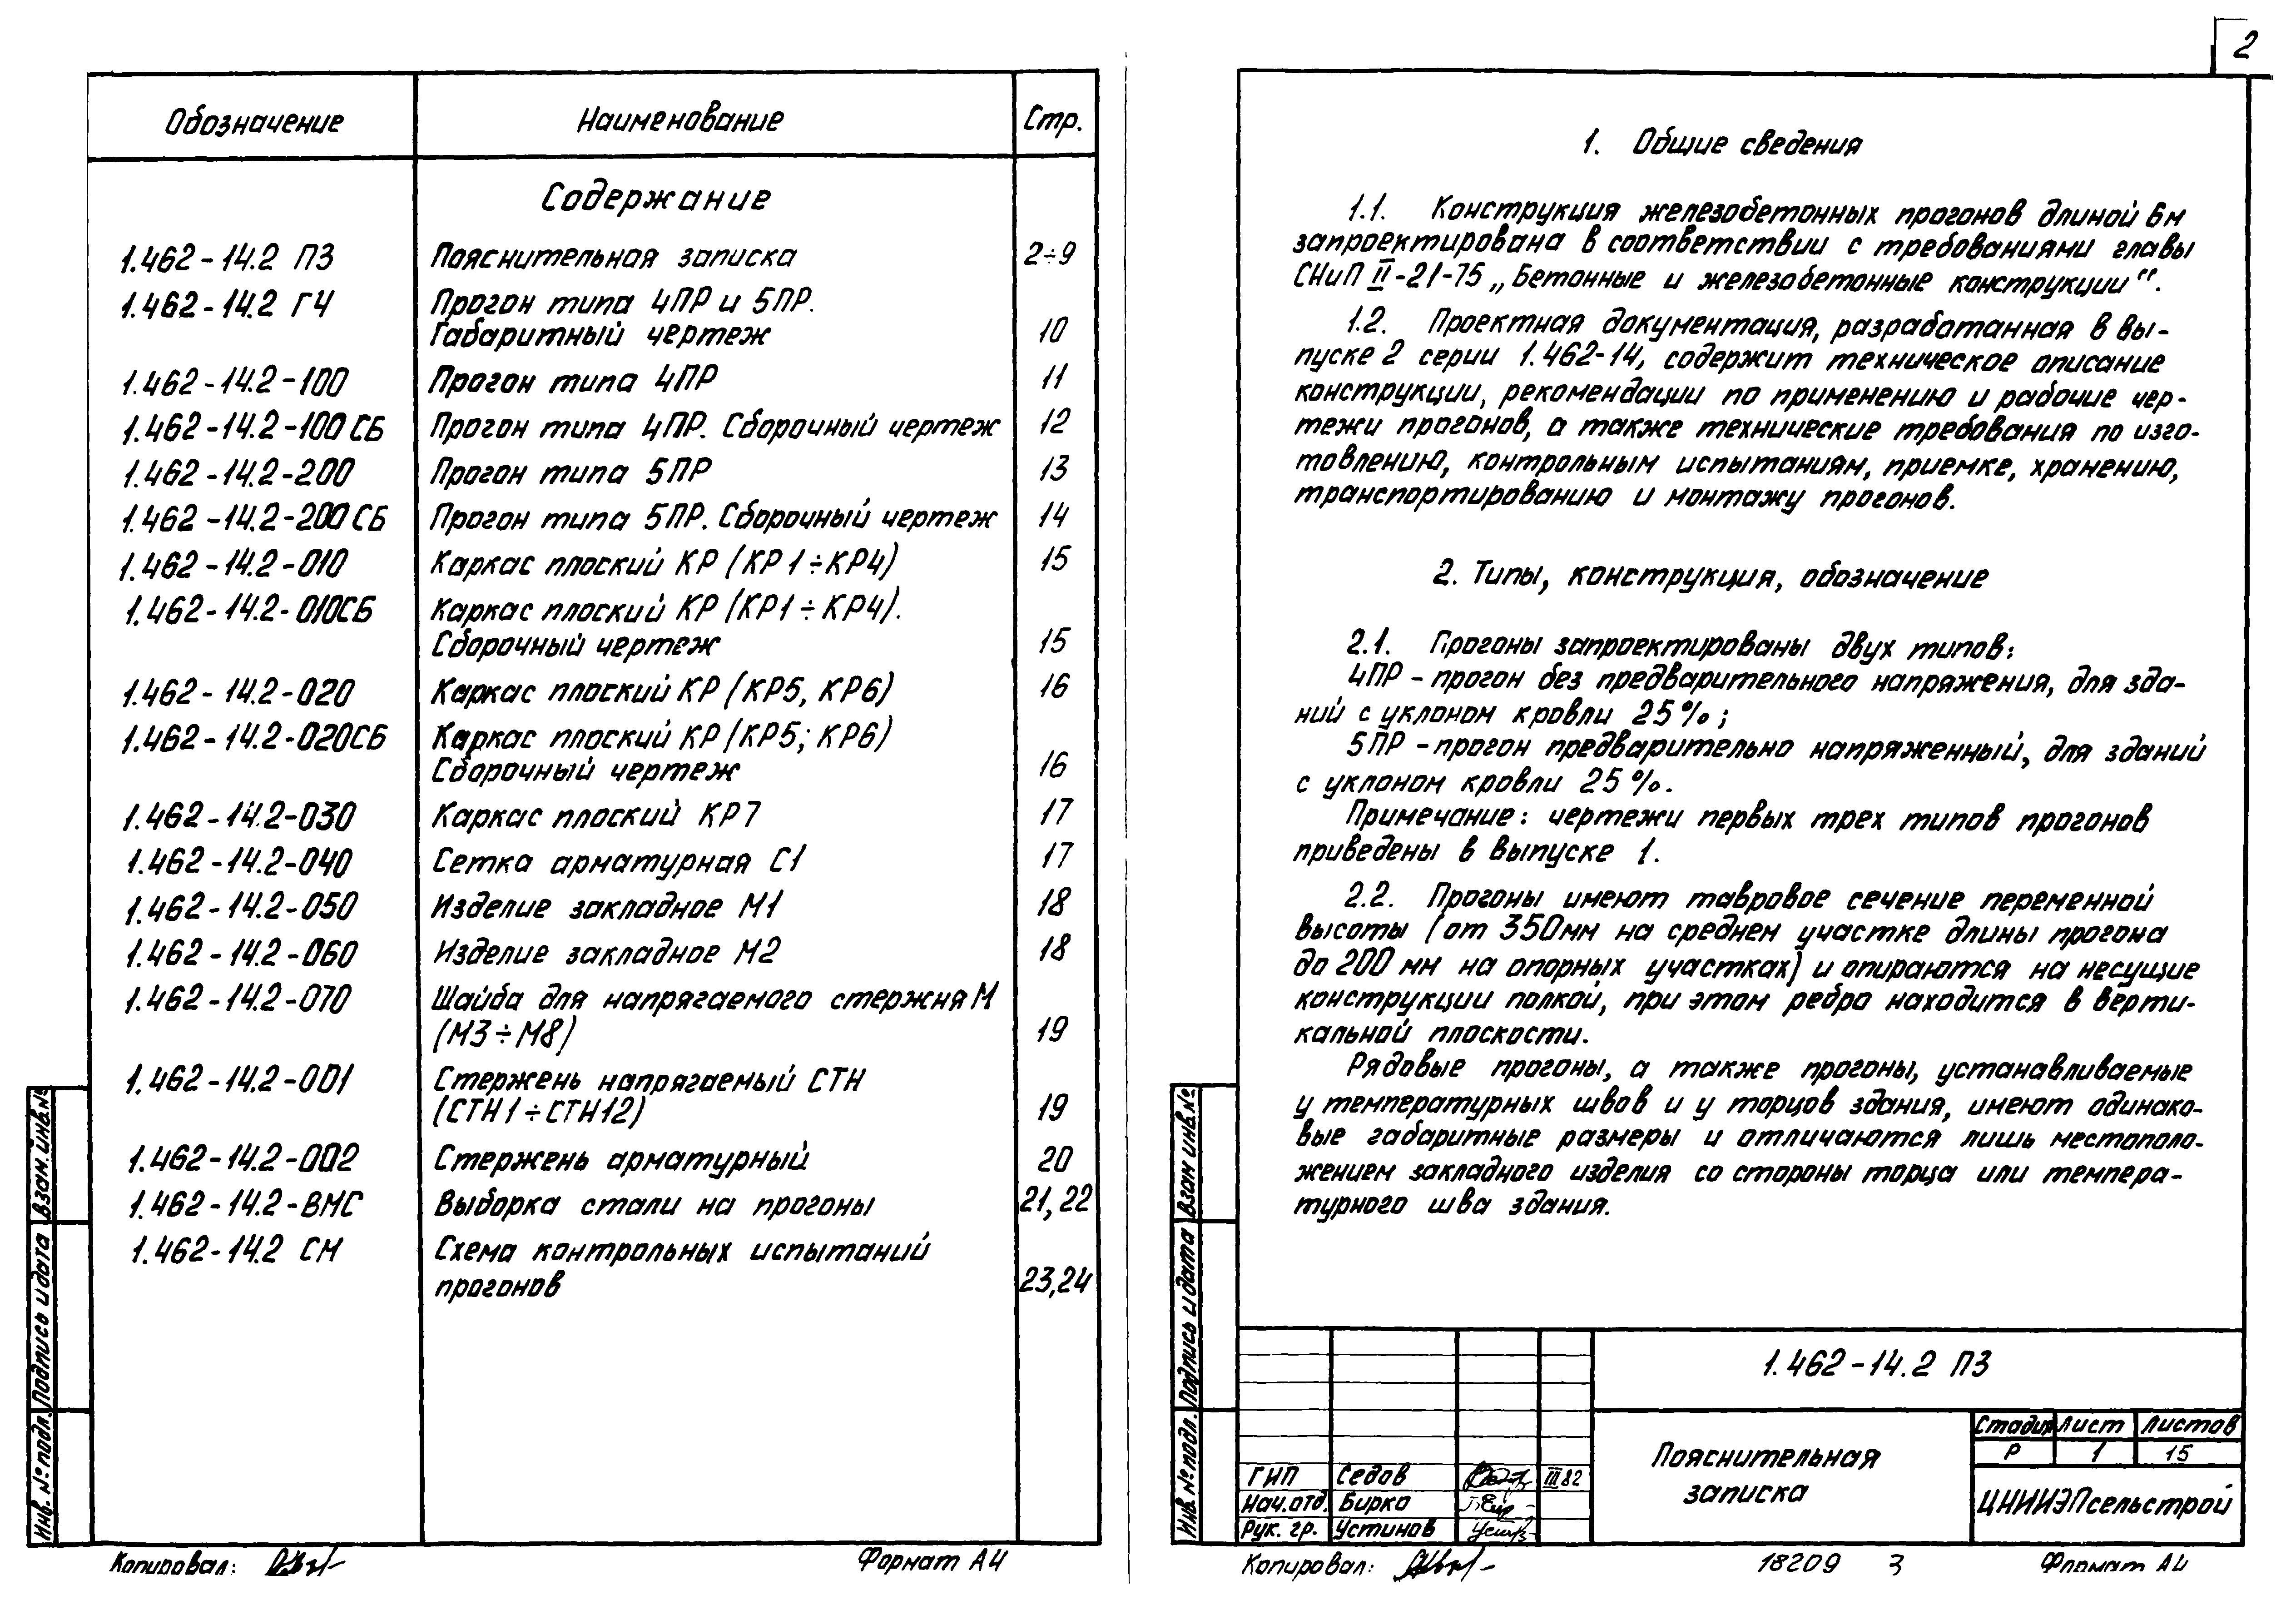 Обозначение Наименование Стр.
Содержание
1.462-14.2 ПЗ Пояснительная записка 2÷9
1.462-14.2 ГЧ Прогон типа 4ПР и 5ПР.
Габаритный чертеж 10
1.462-14.2-100 Прогон типа 4ПР 11
1.462-14.2-100 СБ Прогон типа 4ПР. Сборочный чертеж 12
1.462-14.2-200 Прогон типа 5ПР 13
1.462-14.2-200 СБ Прогон типа 5ПР. Сборочный чертеж 14
1.462-14.2-010 Каркас плоский КР (КР1÷КР4) 15
1.462-14.2-010СБ Каркас плоский КР (КР1÷КР4).
Сборочный чертеж 15
1.462-14.2-020 Каркас плоский КР (КР5, КР6) 16
1.462-14.2-020СБ Каркас плоский КР (КР5; КР6)
Сборочный чертеж 16
1.462-14.2-030 Каркас плоский КР7 17
1.462-14.2-040 Сетка арматурная С1 17
1.462-14.2-050 Изделие закладное М1 18
1.462-14.2-060 Изделие закладное М2 18
1.462-14.2-070 Шайба для напрягаемого стержня М
(М3÷М8) 19
1.462-14.2-001 Стержень напрягаемый СТН
(СТН1÷СТН12) 19
1.462-14.2-002 Стержень арматурный 20
1.462-14.2-ВМС Выборка стали на прогоны 21, 22
1.462-14.2 СМ Схема контрольных испытаний
прогонов 23,24
Взам. инв.№
Подпись и дата
Инв. № подл.
Копировал:
Формат А4
2
1. Общие сведения
1.1. Конструкция железобетонных прогонов длиной 6м
запроектирована в соответствии с требованиями главы
СНиП II-21-75 „Бетонные и железобетонные конструкции“.
1.2. Проектная документация, разработанная в вы-
пуске 2 серии 1.462-14, содержит техническое описание
конструкции, рекомендации по применению и рабочие чер-
тежи прогонов, а также технические требования по изго-
товлению, контрольным испытаниям, приемке, хранению,
транспортированию и монтажу прогонов.
2. Типы, конструкция, обозначение
2.1. Прогоны запроектированы двух типов:
4ПР - прогон без предварительного напряжения, для зда-
ний с уклоном кровли 25%;
5ПР - прогон предварительно напряженный, для зданий
с уклоном кровли 25%.
Примечание: чертежи первых трех типов прогонов
приведены в выпуске 1.
2.2. Прогоны имеют тавровое сечение переменной
высоты (от 350мм на среднем участке длины прогона
до 200 мм на опорных участках) и опираются на несущие
конструкции полкой, при этом ребро находится в верти-
кальной плоскости.
Рядовые прогоны, а также прогоны, устанавливаемые
у температурных швов и у торцов здания, имеют одинако-
вые габаритные размеры и отличаются лишь местополо-
жением закладного изделия со стороны торца или темпера-
турного шва здания.
Взам инв.№
Подпись и дата
Инв. № подл.
1.462-14.2 ПЗ
Пояснительная
записка
Стадия Лист Листов
Р 1 15
ЦНИИЭПсельстрой
ГИП Седов III 82
Нач.отд. Бирко
Рук. гр. Устинов
Копировал:
18209 3
Формат А4